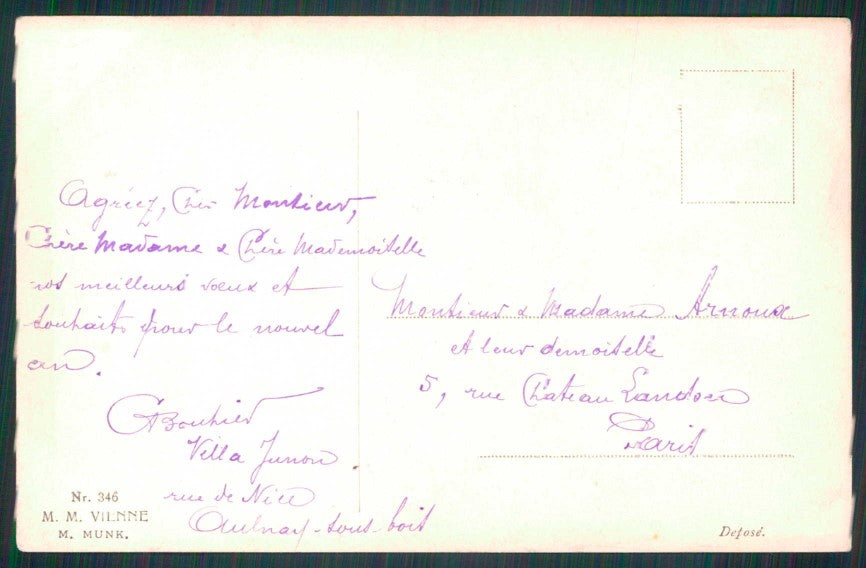 Agréez, Cher Monsieur,
Chère Madame & Chère Mademoiselle
nos meilleurs vœux et
souhaits pour le nouvel
an.
Bouhier
Villa Junon
rue de Nice
Aulnay-sous-bois
Monsieur & Madame Arnoux
et leur demoiselle
5, rue Château Landon
Paris
Nr. 346
M. M. VIENNE
M. MUNK.
Deposé.